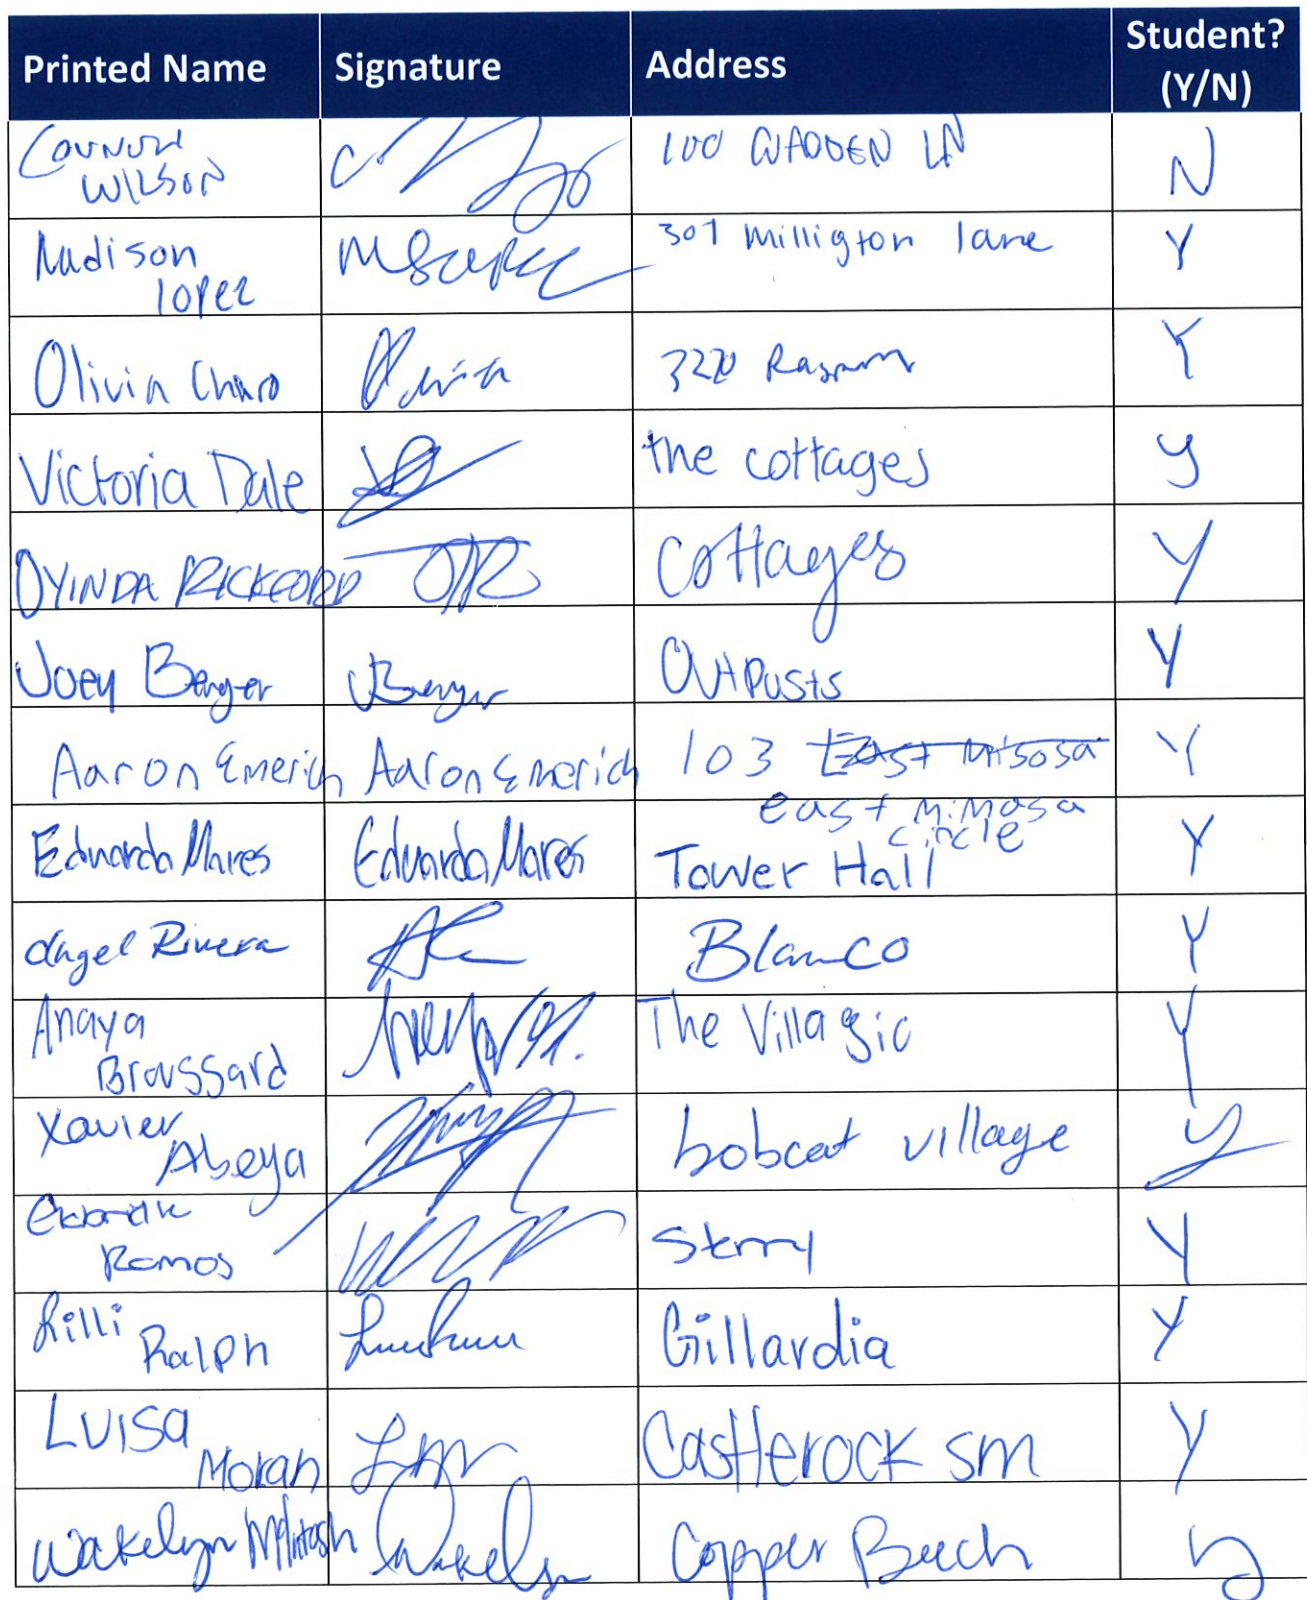 Printed Name Signature Address Student? (Y/N)
Connor
WILSON
100 WADDEN LN N
Madison
lopez
301 Milligton lane Y
Olivia Charo Olivia 3220 Y
Victoria Dale the cottages y
OYINDA RICKFORD Cottages Y
Joey Berger JBerger OutPusts Y
Aaron Emerich Aaron Emerich 103 East Misosa Y
east Mimosa
circle
Eduardo Mares Eduardo Mares Tower Hall Y
Angel Rivera Blanco Y
Anaya
Broussard
The Villagio Y
Xavier
Abeya
bobcat village y
Ramos
Sterry Y
Lilli
Ralph
Gillardia Y
LUISA
Moran
Castlerock sm Y
Wakelyn McIntosh Wakelyn Copper Beech y